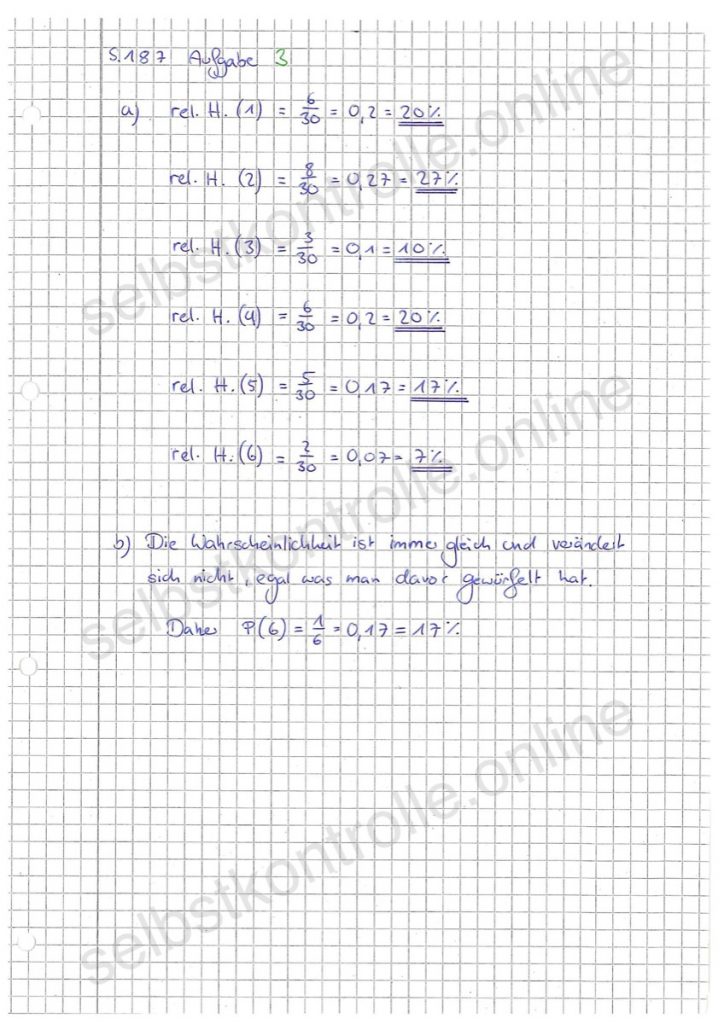 S.187 Aufgabe 3
a) rel. H. (1) = 6/30 = 0,2 = 20%
rel. H. (2) = 8/30 = 0,27 = 27%
rel. H. (3) = 3/30 = 0,1 = 10%
rel. H. (4) = 6/30 = 0,2 = 20%
rel. H. (5) = 5/30 = 0,17 = 17%
rel. H. (6) = 2/30 = 0,07 = 7%
b) Die Wahrscheinlichkeit ist immer gleich und verändert
sich nicht, egal was man davor gewürfelt hat.
Daher P(6) = 1/6 = 0,17 = 17%
selbstkontrolle.online
selbstkontrolle.online
selbstkontrolle.online